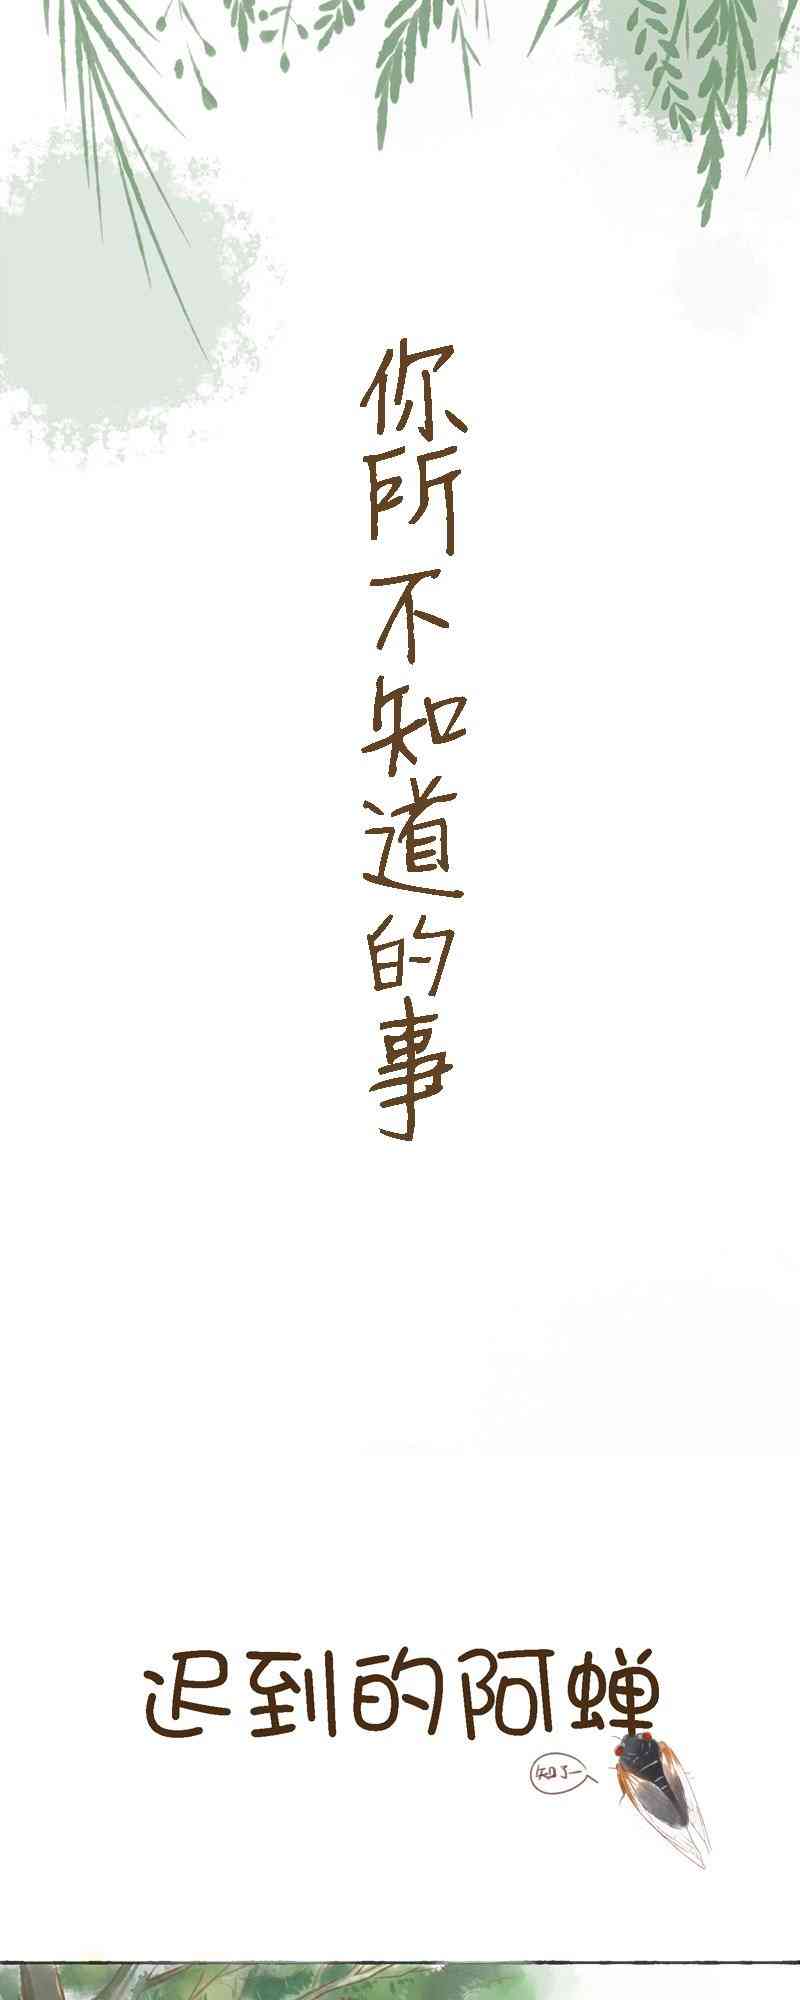 你所不知道的事
迟到的阿蝉
知了一